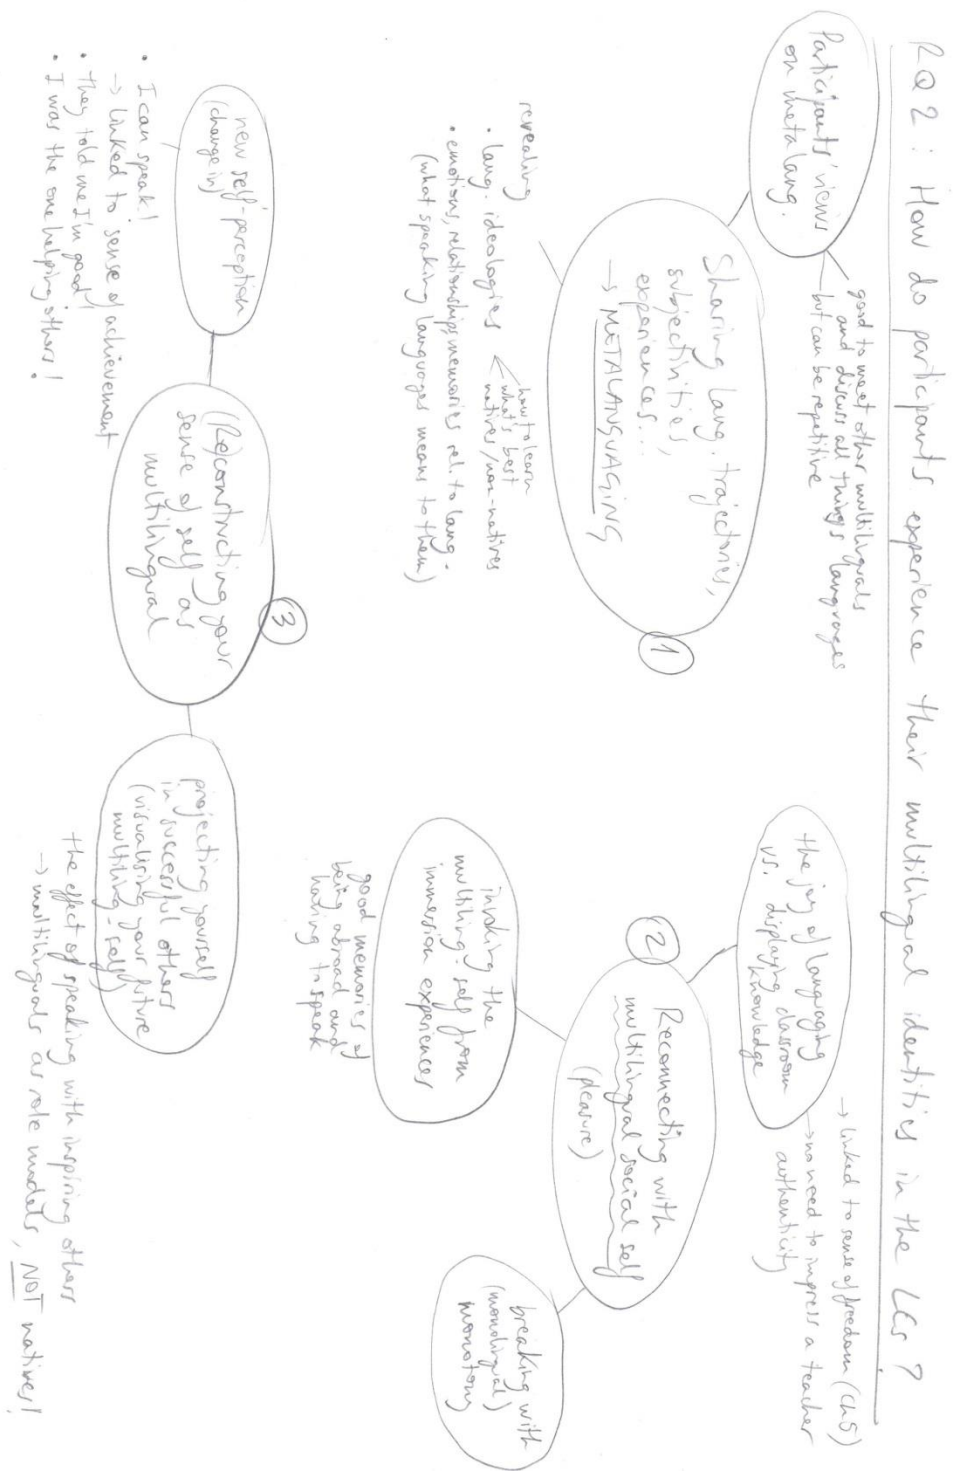 RQ2: How do participants experience their multilingual identities in the LCs?
Participants' views
on metalang.
good to meet other multilinguals
and discuss all things languages
but can be repetitive
Sharing lang. trajectories,
subjectivities,
experiences...
→ METALANGUAGING
1
revealing
• lang. ideologies
how to learn
what's best
natives/non-natives
• emotions, relationships, memories rel. to lang.
(what speaking languages means to them)
the joy of languaging
vs. displaying classroom
knowledge
→ linked to sense of freedom (Ch5)
→ no need to impress a teacher
authenticity
2
Reconnecting with
multilingual social self
(pleasure)
invoking the
multiling. self from
immersion experiences
good memories of
being abroad and
having to speak
breaking with
(monolingual)
monotony
3
(Re)constructing your
sense of self as
multilingual
new self-perception
(change in)
• I can speak!
→ linked to sense of achievement
• they told me I'm good!
• I was the one helping others!
projecting yourself
in successful others
(visualising your future
multiling. self)
the effect of speaking with inspiring others
→ multilinguals as role models, NOT natives!